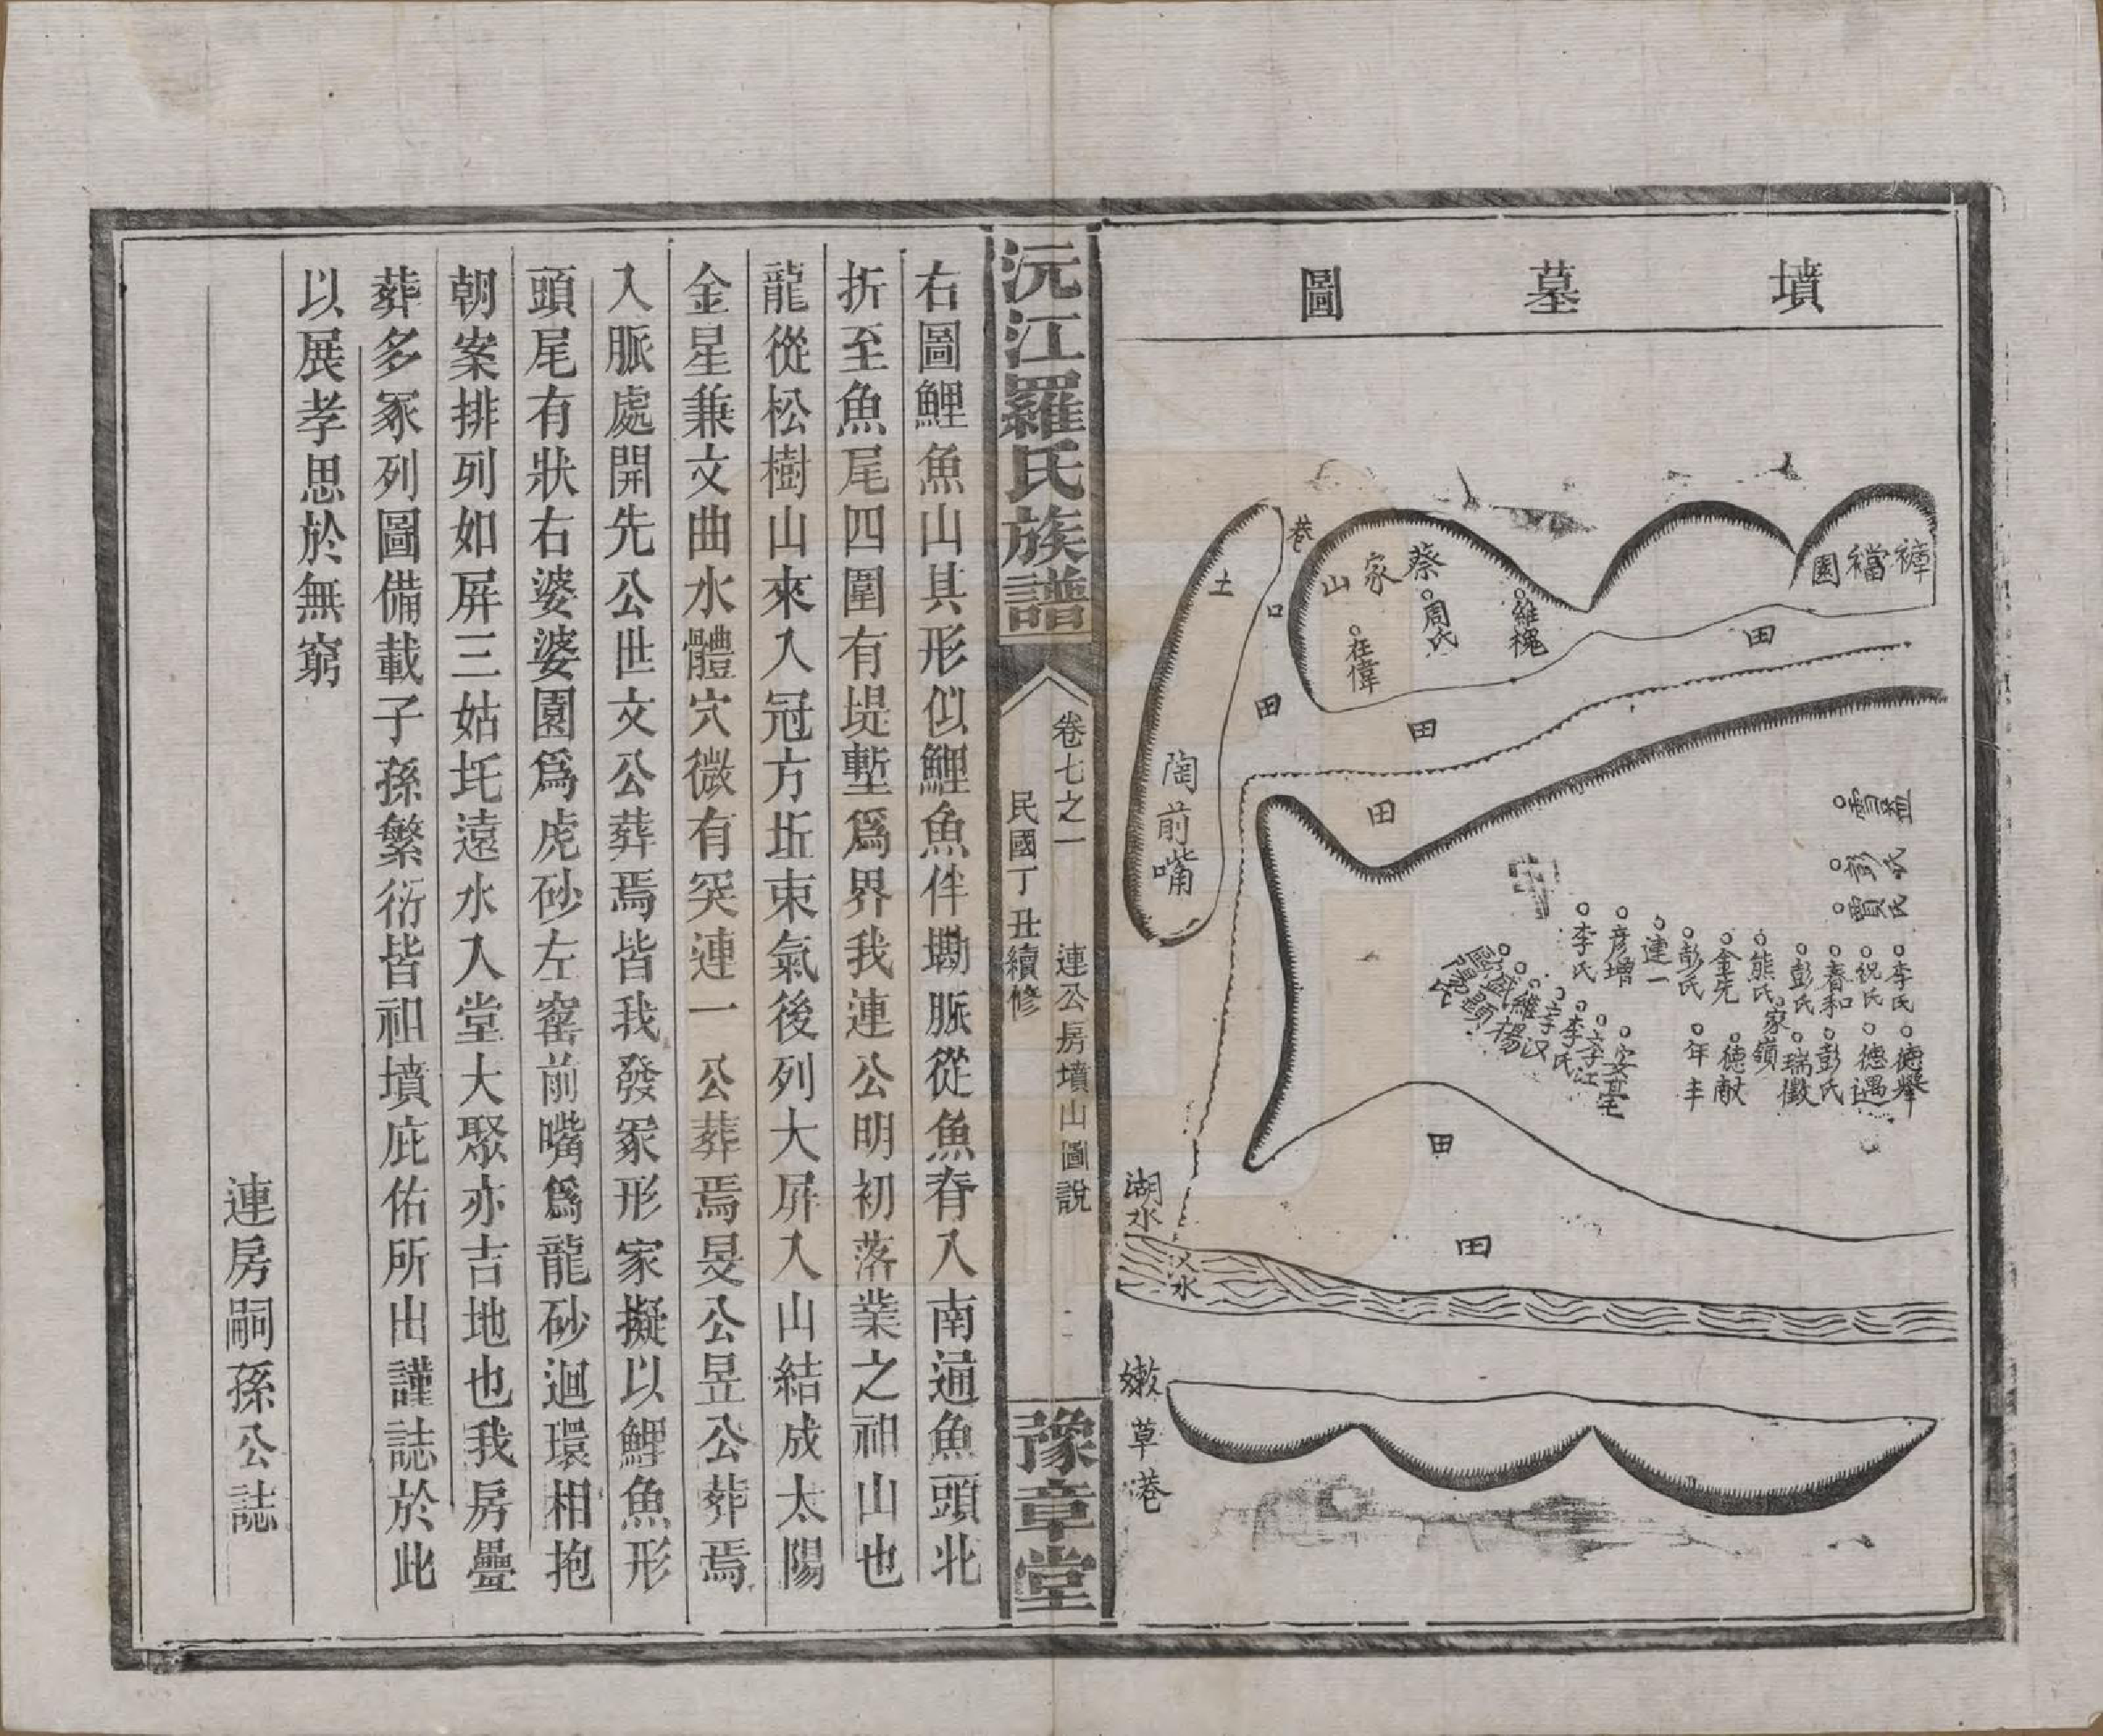 墳墓圖
褲襠園
田
維槐
蔡家山
周氏
在偉
巷口
田
田
田
土
陶前嘴
雪益
彭氏
賈氏
李氏
祝氏
春和
彭氏
熊氏
金先
彭氏
連一
彦增
李氏
德舉
德遇
彭氏
瑞徵
家嶺
德猷
年丰
安宅
李江
李氏
維楊
田
田
湖水
汊水
嫩草巷
沅江羅氏族譜
卷七之一
連公房墳山圖說
民國丁丑續修
豫章堂
右圖鯉魚山其形似鯉魚伴塘脈從魚脊入南通魚頭北
折至魚尾四圍有堤塹爲界我連公明初落業之祖山也
龍從松樹山來入冠方坵束氣後列大屏入山結成太陽
金星兼文曲水體穴微有突連一公葬焉旻公昱公葬焉
入脈處開先公世文公葬焉皆我發冢形家擬以鯉魚形
頭尾有狀右婆婆園爲虎砂左窰前嘴爲龍砂迴環相抱
朝案排列如屏三姑坉遠水入堂大聚亦吉地也我房疊
葬多冢列圖備載子孫繁衍皆祖墳庇佑所出謹誌於此
以展孝思於無窮
連房嗣孫公誌